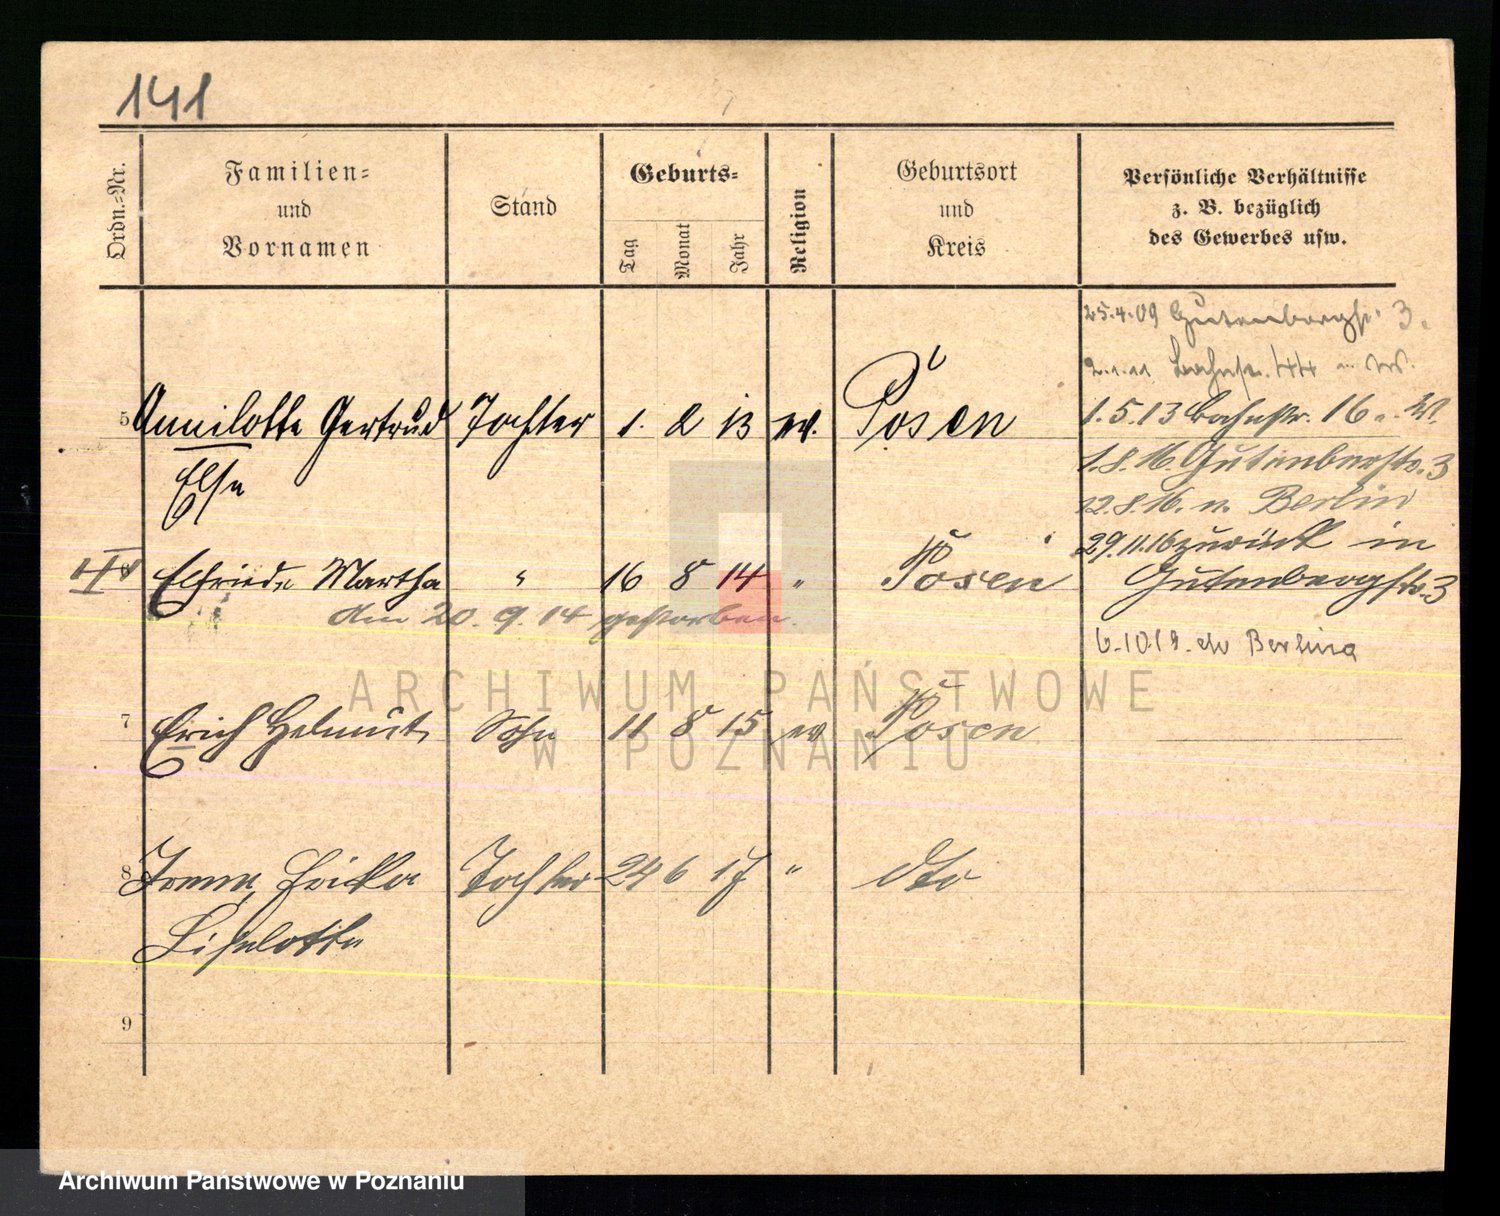 141
Ordn.-Nr.
Familien-
und
Vornamen
Stand
Geburts-
Tag
Monat
Jahr
Religion
Geburtsort
und
Kreis
Persönliche Verhältnisse
z. B. bezüglich
des Gewerbes usw.
25.4.09 Gutenbergstr. 3.
2.1.11 Bahnstr. 44
5 Annilotte Gertrud Tochter 1. 2 13 ev. Posen
Else
1.5.13 Bahnstr. 16
1.8.16. Gutenbergstr. 3
22.8.16. n. Berlin
29.11.16 zurück in
Gutenbergstr. 3
Elfriede Martha " 16 8 14 " Posen
am 20. 9. 14 gestorben.
6.10.19. do Berlina
7 Erich Helmut Sohn 11 8 15 ev Posen
8 Irene Erika Tochter 24 6 17 " dto
Liselotte
9
ARCHIWUM PAŃSTWOWE
W POZNANIU
Archiwum Państwowe w Poznaniu